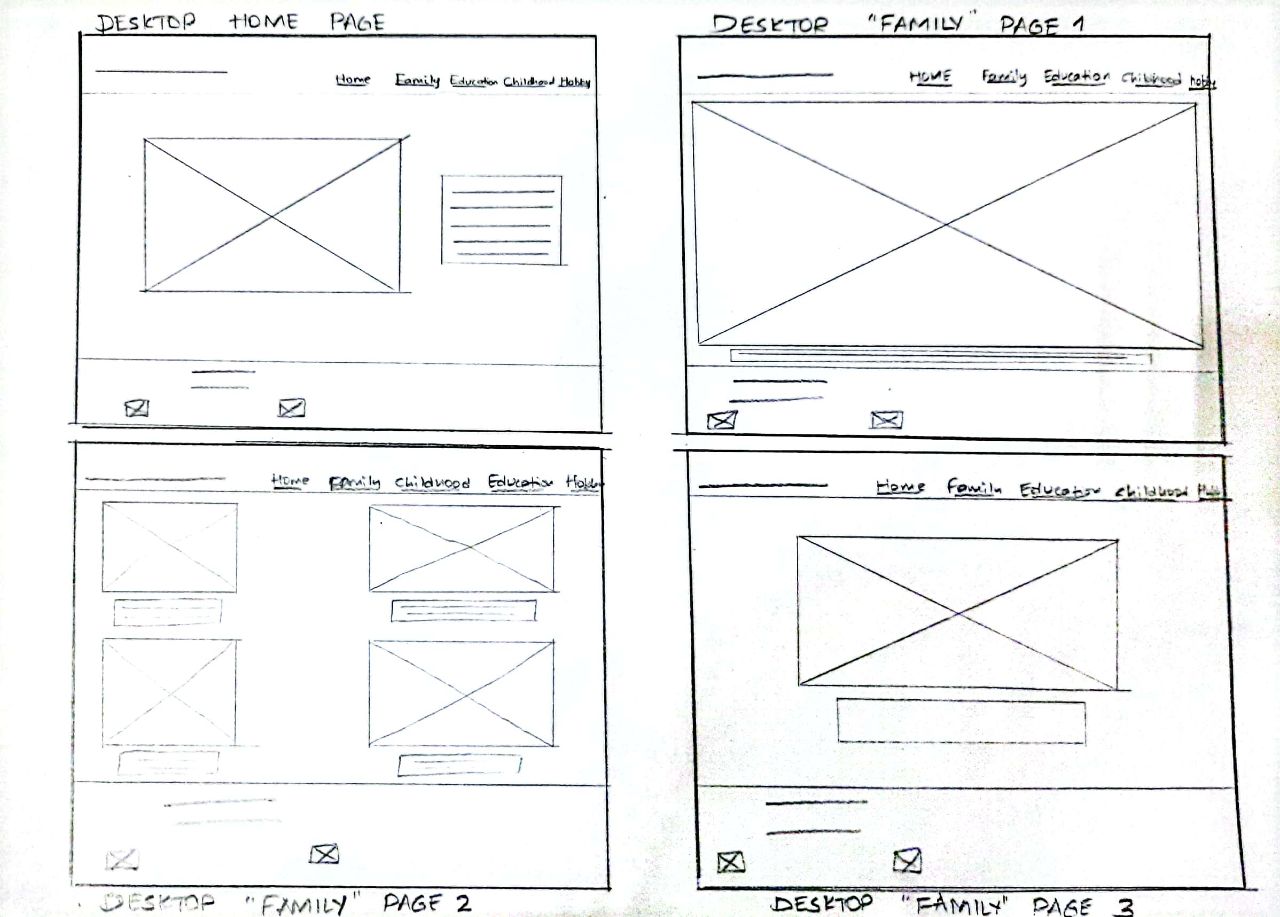 DESKTOP HOME PAGE
Home Family Education Childhood Hobby
DESKTOP "FAMILY" PAGE 1
HOME Family Education Childhood Hobby
Home Family Childhood Education Hobby
DESKTOP "FAMILY" PAGE 2
Home Family Education Childhood Hobby
DESKTOP "FAMILY" PAGE 3